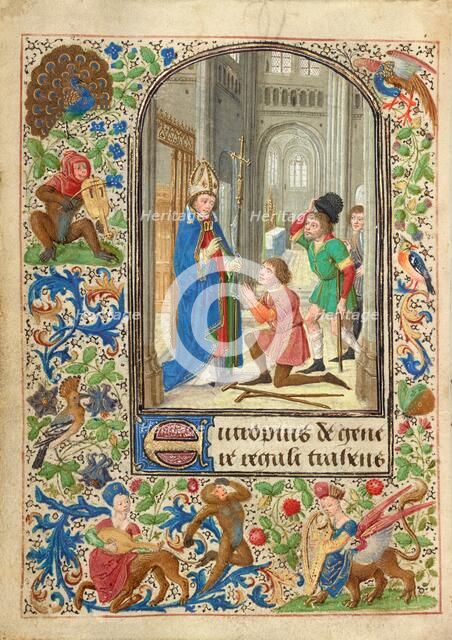 Heritage Heritage
Heritage Heritage
Eutropius de gene
re regali trahens